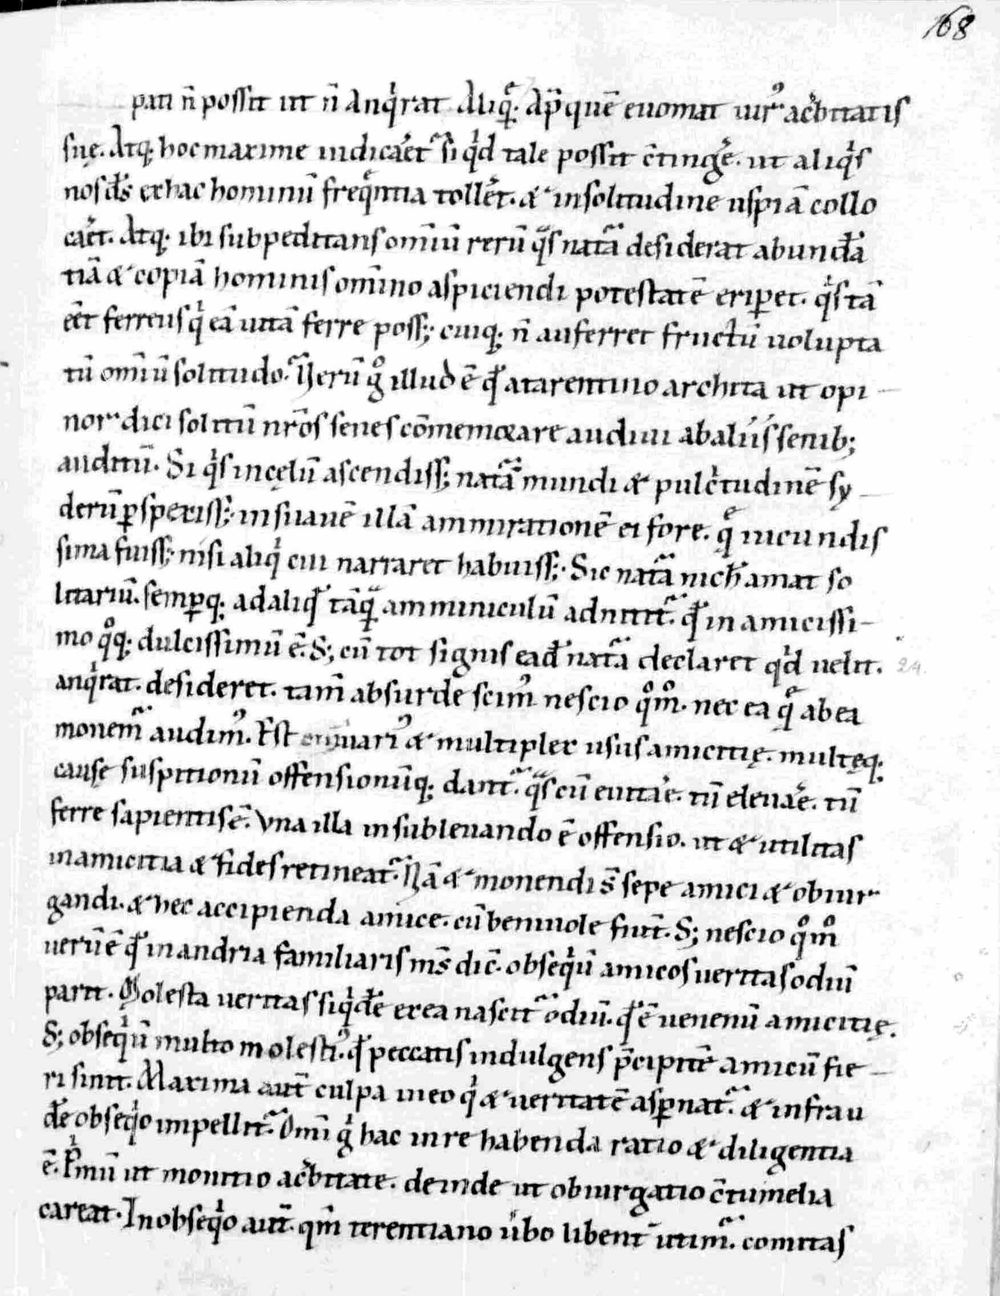 168
pati n̄ possit ut n̄ anqͥrat aliqͣ. ap̄ quē euomat uirꝰ ac̄bitatis
suę. Atq; hoc maxime iudicaret᷑ si qͥd tale possit c̄tinge᷒. ut aliqͥs
nos ds̄ ex hac hominū freq̄ntia tolleret. & in solitudine uspiā collo
caret. Atq; ibi subpeditans om̄iū rerū qͣs natā desiderat abundā
tiā & copiā hominis om̄ino aspiciendi potestatē eriꝑet. qͥs tā
eēt ferreus qͥ eā uitā ferre poss&; cuiq; n̄ auferret fructū uolupta
tū om̄iū solitudo. Verū gͦ illud ē qd̄ a tarentino archita ut opi
nor dici solitū nr̄os senes cōmemorare audiui ab aliis senib;
auditū. Si qͥs in cęlū ascendiss; natā mundi & pulc̄tudinē sy
derū ꝑspexiss; insuauē illā ammirationē ei fore. qͤ iucundis
sima fuiss; nisi aliqͥ cui narraret habuiss;. Sic natā nich̄ amat so
litariū. semꝑq; ad aliqd̄ tāqͣ amminiculū adnitit᷑. qd̄ in amicissi
mo qͦq; dulcissimū ē. S; cū tot signis ead̄ natā declaret qͥd uelit.
anqͥrat. desideret. tam̄ absurdescimꝰ nescio qͦmͦ. nec ea qͤ ab ea
monem᷑ audimꝰ. Est uariꝰ & multiplex usus amicitię. multęq;
causę suspitionū offensionūq; dant᷑. qͣs cū euitare. tū eleuare. tū
ferre sapientis ē. Vna illa in subleuando ē offensio. ut & utilitas
in amicitia & fides retineat᷑. Nā & monendi s̄ sepe amici & obiur
gandi. & hec accipienda amice. cū beniuole fiunt. S; nescio qͦmͦ
uerū ē qd̄ in andria familiaris ms̄ dic̄. obseqͥū amicos ueritas odiū
parit. Molesta ueritas siqͥdē ex ea nascit᷑ odiū. qd̄ ē uenenū amicitię.
S; obseqͥū multo molestiꝰ. qd̄ peccatis indulgens p̄cipitē amicū fie
ri sinit. Maxima aut̄ culpa in eo qͥ & ueritatē asꝑnat᷑. & in frau
dē obseqͥo impellit᷑. Omī gͥ hac in re habenda ratio & diligentia
ē. Pͥmū ut monitio ac̄bitate. deinde ut obiurgatio c̄tumelia
careat. In obseqͥo aut̄. qm̄ terentiano u̅bo libent̄ utim᷑. comitas
24.